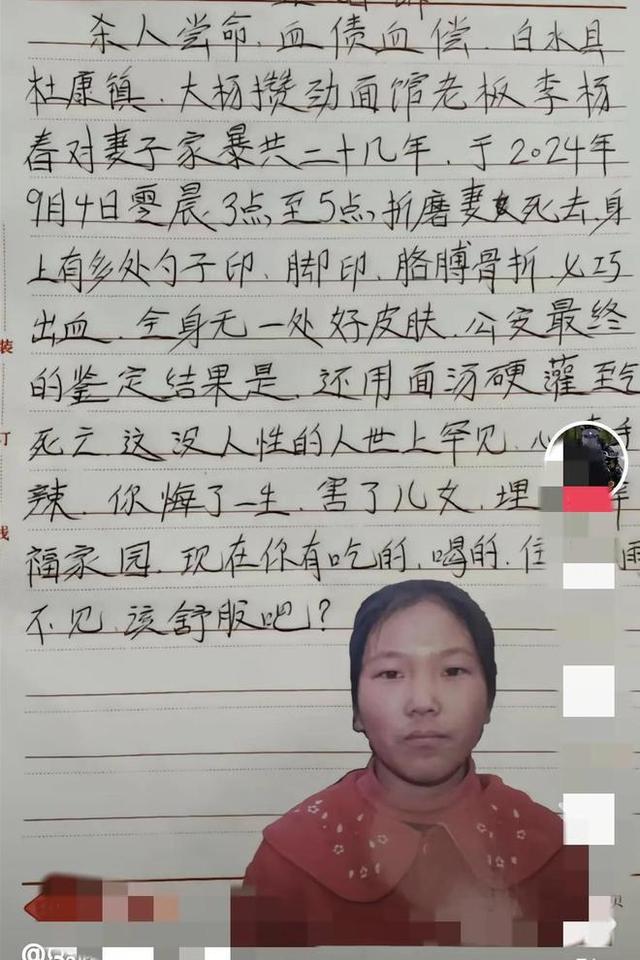 杀人尝命.血债血偿.白水县
杜康镇.大杨攒劲面馆老板李杨
春对妻子家暴共二十几年.于2024年
9月4日零晨.3点至5点,折磨妻死去.身
上有多处勺子印、脚印、胳膊骨折.
出血.全身无一处好皮肤.公安最终
的鉴定结果是.还用面汤硬灌至气
死亡.这没人性的人世上罕见.心
辣.你悔了一生.害了儿女.埋
福家园.现在你有吃的.喝的.住
不见.该舒服吧？
装
订
线